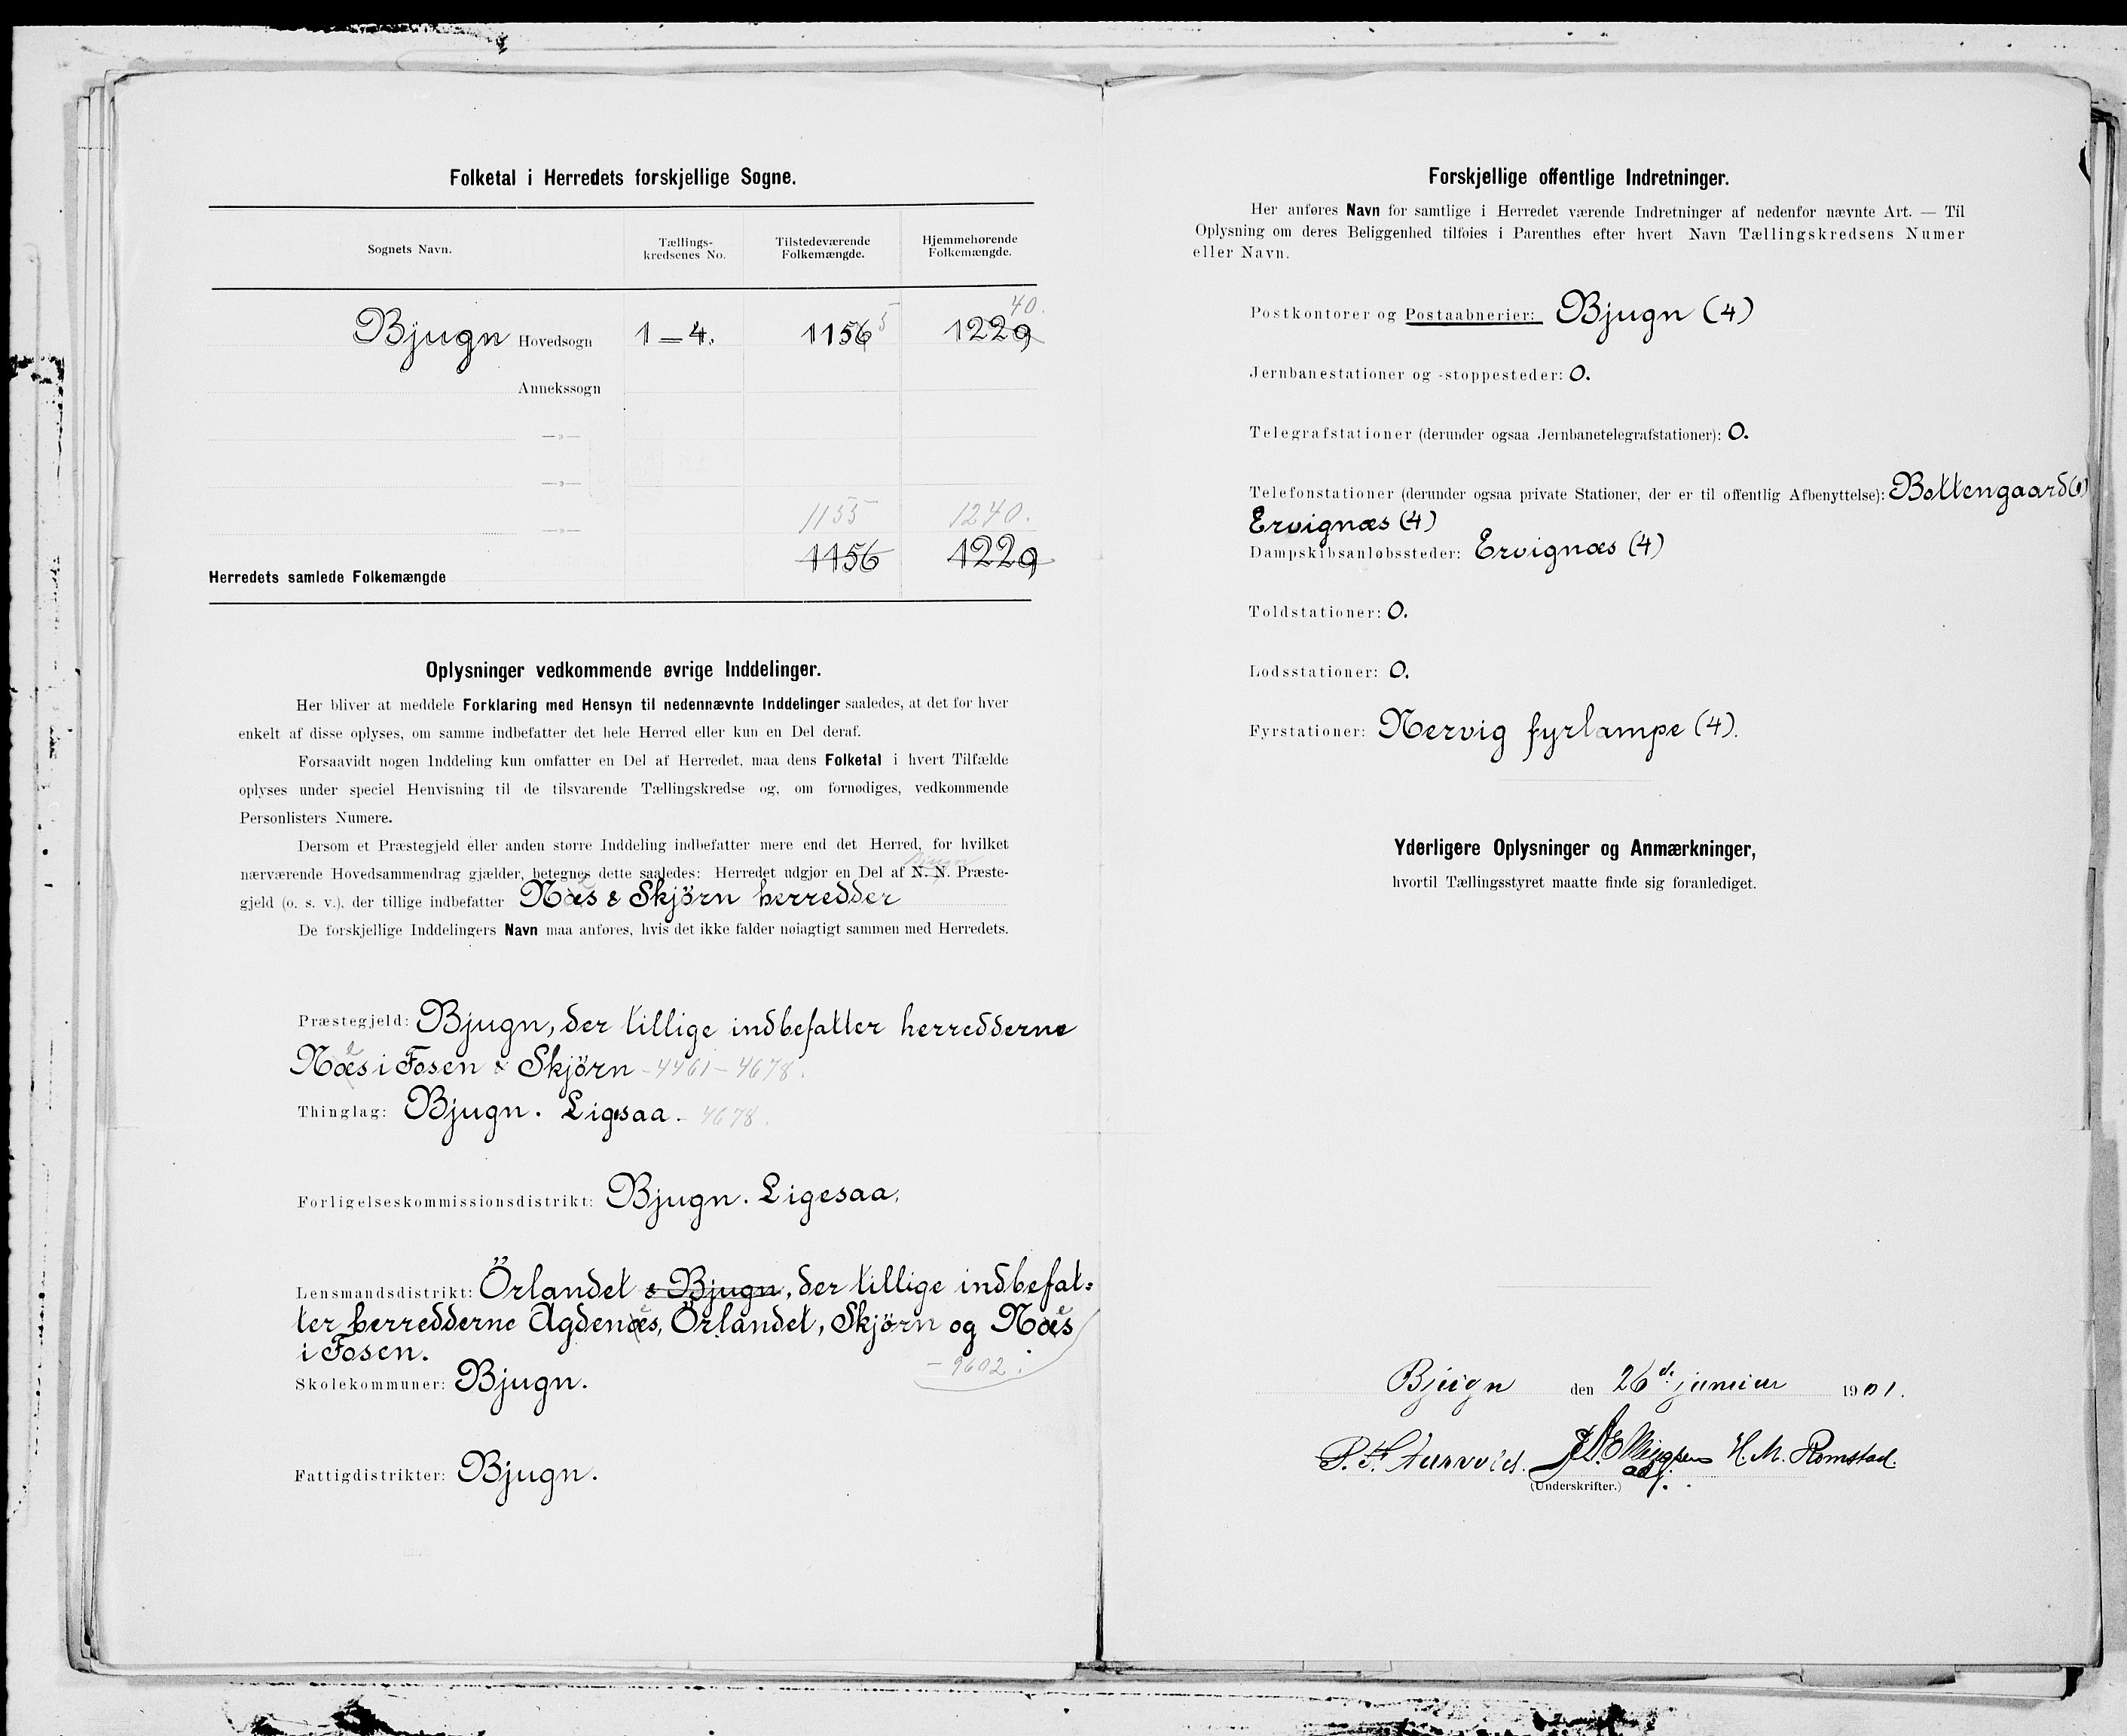 Folketal i Herredets forskjellige Sogne.
Sognets Navn. Tællings-kredsenes No. Tilstedeværende Folkemængde. Hjemmehørende Folkemængde.
40.
Bjugn Hovedsogn 1—4. 1156 5 1229
Annekssogn
—»—
—»—
1155 1240.
—»—
1156 1229
Herredets samlede Folkemængde
Oplysninger vedkommende øvrige Inddelinger.
Her bliver at meddele Forklaring med Hensyn til nedennævnte Inddelinger saaledes, at det for hver
enkelt af disse oplyses, om samme indbefatter det hele Herred eller kun en Del deraf.
Forsaavidt nogen Inddeling kun omfatter en Del af Herredet, maa dens Folketal i hvert Tilfælde
oplyses under speciel Henvisning til de tilsvarende Tællingskredse og, om fornødiges, vedkommende
Personlisters Numere.
Dersom et Præstegjeld eller anden større Inddeling indbefatter mere end det Herred, for hvilket
Bjugn
nærværende Hovedsammendrag gjælder, betegnes dette saaledes: Herredet udgjør en Del af N. N. Præste-
gjeld (o. s. v.), der tillige indbefatter Næs & Skjörn herredder
De forskjellige Inddelingers Navn maa anføres, hvis det ikke falder nøiagtigt sammen med Herredets.
Præstegjeld: Bjugn, der tillige indbefatter herredderne
Næs i Fosen & Skjörn - 4461 - 4678.
Thinglag: Bjugn. Ligesaa. - 4678.
Forligelseskommissionsdistrikt: Bjugn. Ligesaa.
Lensmandsdistrikt: Örlandet & Bjugn, der tillige indbefat-
ter herredderne Agdenæs, Örlandet, Skjörn og Næs
i Fosen.
- 9602.
Skolekommuner: Bjugn.
Fattigdistrikter: Bjugn.
Forskjellige offentlige Indretninger.
Her anføres Navn for samtlige i Herredet værende Indretninger af nedenfor nævnte Art. — Til
Oplysning om deres Beliggenhed tilføies i Parenthes efter hvert Navn Tællingskredsens Numer
eller Navn.
Postkontorer og Postaabnerier: Bjugn (4)
Jernbanestationer og -stoppesteder: 0.
Telegrafstationer (derunder ogsaa Jernbanetelegrafstationer): 0.
Telefonstationer (derunder ogsaa private Stationer, der er til offentlig Afbenyttelse): Bottengaard
Ervignæs (4)
Dampskibsanløbssteder: Ervignæs (4)
Toldstationer: 0.
Lodsstationer: 0.
Fyrstationer: Nervig fyrlampe (4).
Yderligere Oplysninger og Anmærkninger,
hvortil Tællingsstyret maatte finde sig foranlediget.
Bjugn den 26de januar 1901.
P. H. H. M. Romstad.
(Underskrifter.)